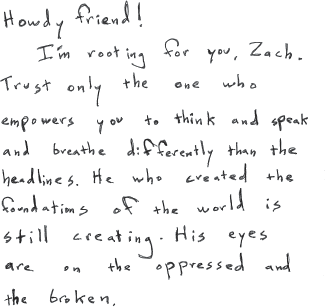 Howdy friend!
I'm rooting for you, Zach.
Trust only the one who
empowers you to think and speak
and breathe differently than the
headlines. He who created the
foundations of the world is
still creating. His eyes
are on the oppressed and
the broken.